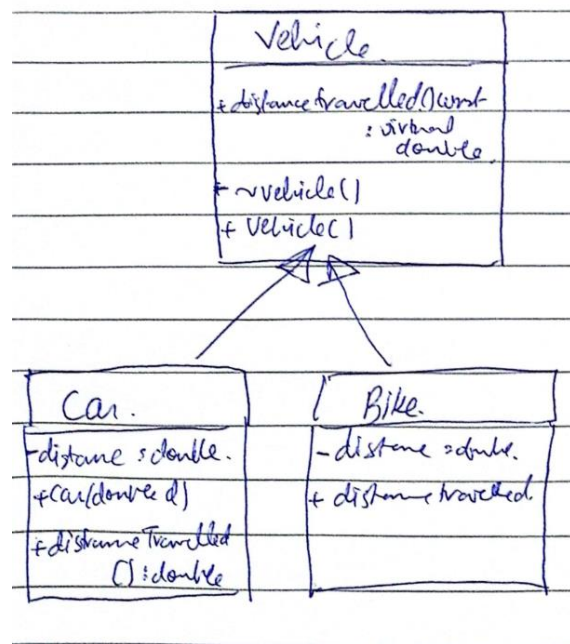 Vehicle
+ distancetravelled() const
: virtual
double
+ ~vehicle()
+ Vehicle()
Car.
- distance : double.
+ Car(double d)
+ distanceTravelled
() : double
Bike.
- distance : double.
+ distancetravelled.